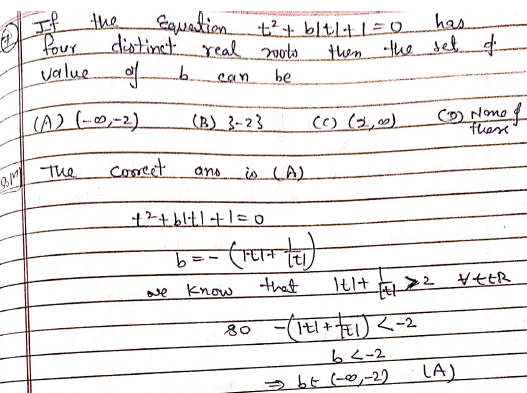 If the Equation t² + b|t| + 1 = 0 has
four distinct real roots then the set of
value of b can be
(A) (-∞, -2) (B) {-2} (C) (2, ∞) (D) None of
these
Solⁿ The Correct ans is (A)
t² + b|t| + 1 = 0
b = - (|t| + 1/|t|)
we know that |t| + 1/|t| > 2 ∀ t ∈ R
so -(|t| + 1/|t|) < -2
b < -2
⇒ b ∈ (-∞, -2) (A)